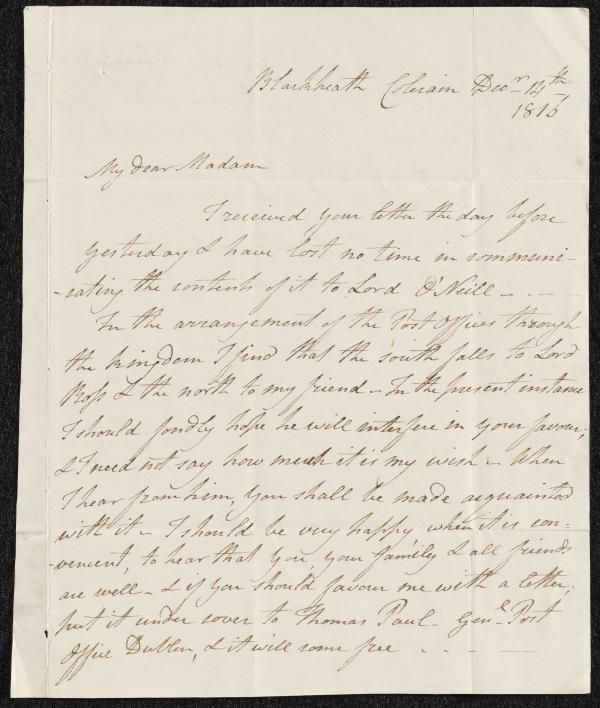 Blackheath Colerain Decr. 14th
1816
My dear Madam
I received your letter the day before
yesterday & have lost no time in communi-
-cating the contents of it to Lord O'Neill - - -
In the arrangement of the Post Offices through
the kingdom I find that the south falls to Lord
Ross & the north to my friend - In the present instance
I should fondly hope he will interfere in your favour;
& I need not say how much it is my wish - When
I hear from him, you shall be made acquainted
with it - I should be very happy when it is con-
-venient, to hear that you, your family & all friends
are well - & if you should favour me with a letter,
put it under cover to Thomas Paul - Genl. Post
Office Dublin, & it will come free - - - -